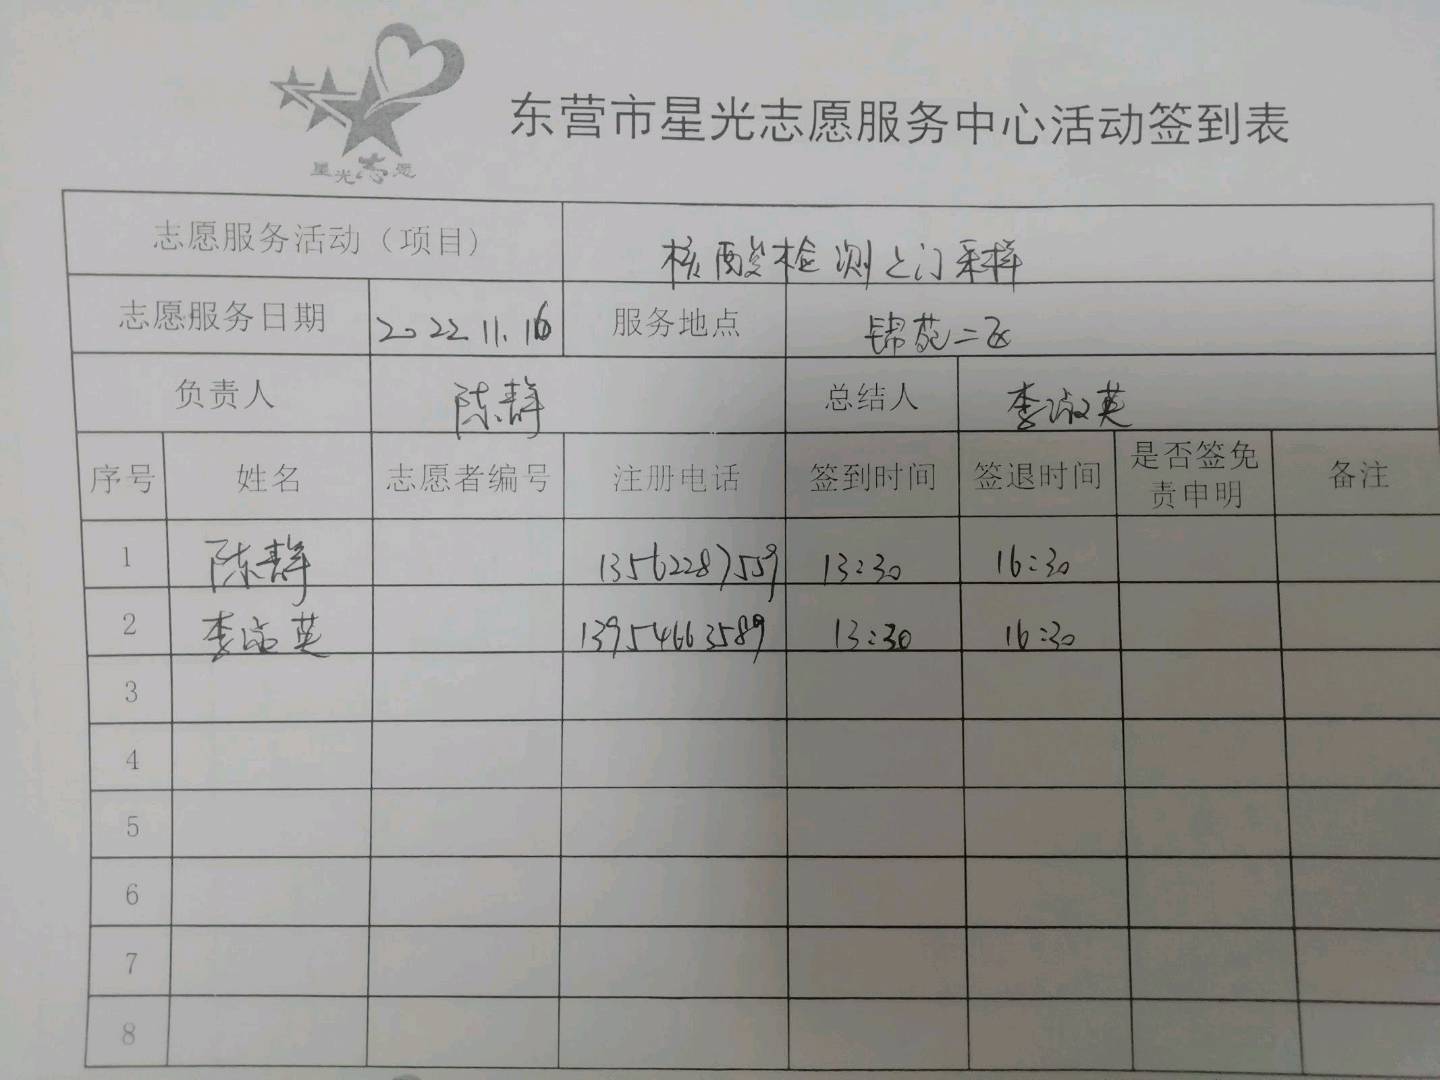 星光志愿
东营市星光志愿服务中心活动签到表
志愿服务活动（项目） 核酸检测上门采样
志愿服务日期 2022.11.16 服务地点 锦苑二区
负责人 陈静 总结人 李淑英
序号 姓名 志愿者编号 注册电话 签到时间 签退时间 是否签免责申明 备注
1 陈静 13562287559 13:30 16:30
2 李淑英 13954663589 13:30 16:30
3
4
5
6
7
8